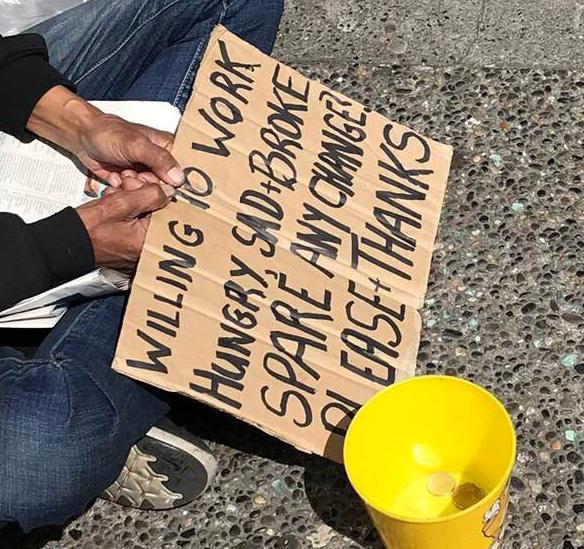 WILLING TO WORK
HUNGRY, SAD+BROKE
SPARE ANY CHANGE?
PLEASE+THANKS